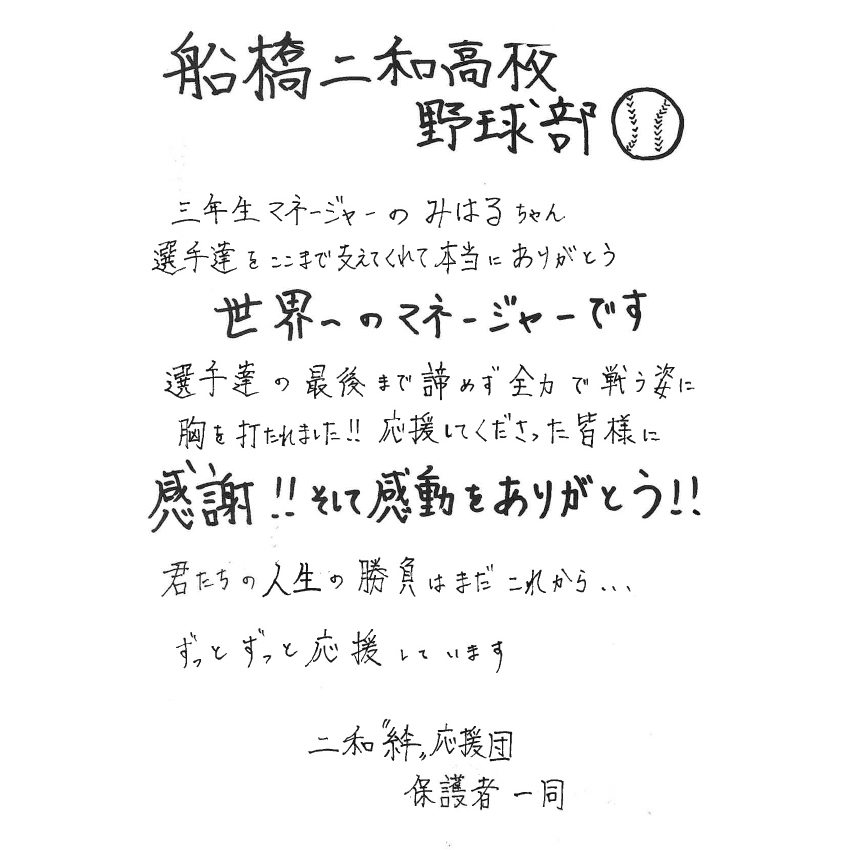 船橋二和高校
野球部
三年生マネージャーのみはるちゃん
選手達をここまで支えてくれて本当にありがとう
世界一のマネージャーです
選手達の最後まで諦めず全力で戦う姿に
胸を打たれました!! 応援してくださった皆様に
感謝!!そして感動をありがとう!!
君たちの人生の勝負はまだこれから...
ずっとずっと応援しています
二和〝絆〟応援団
保護者一同